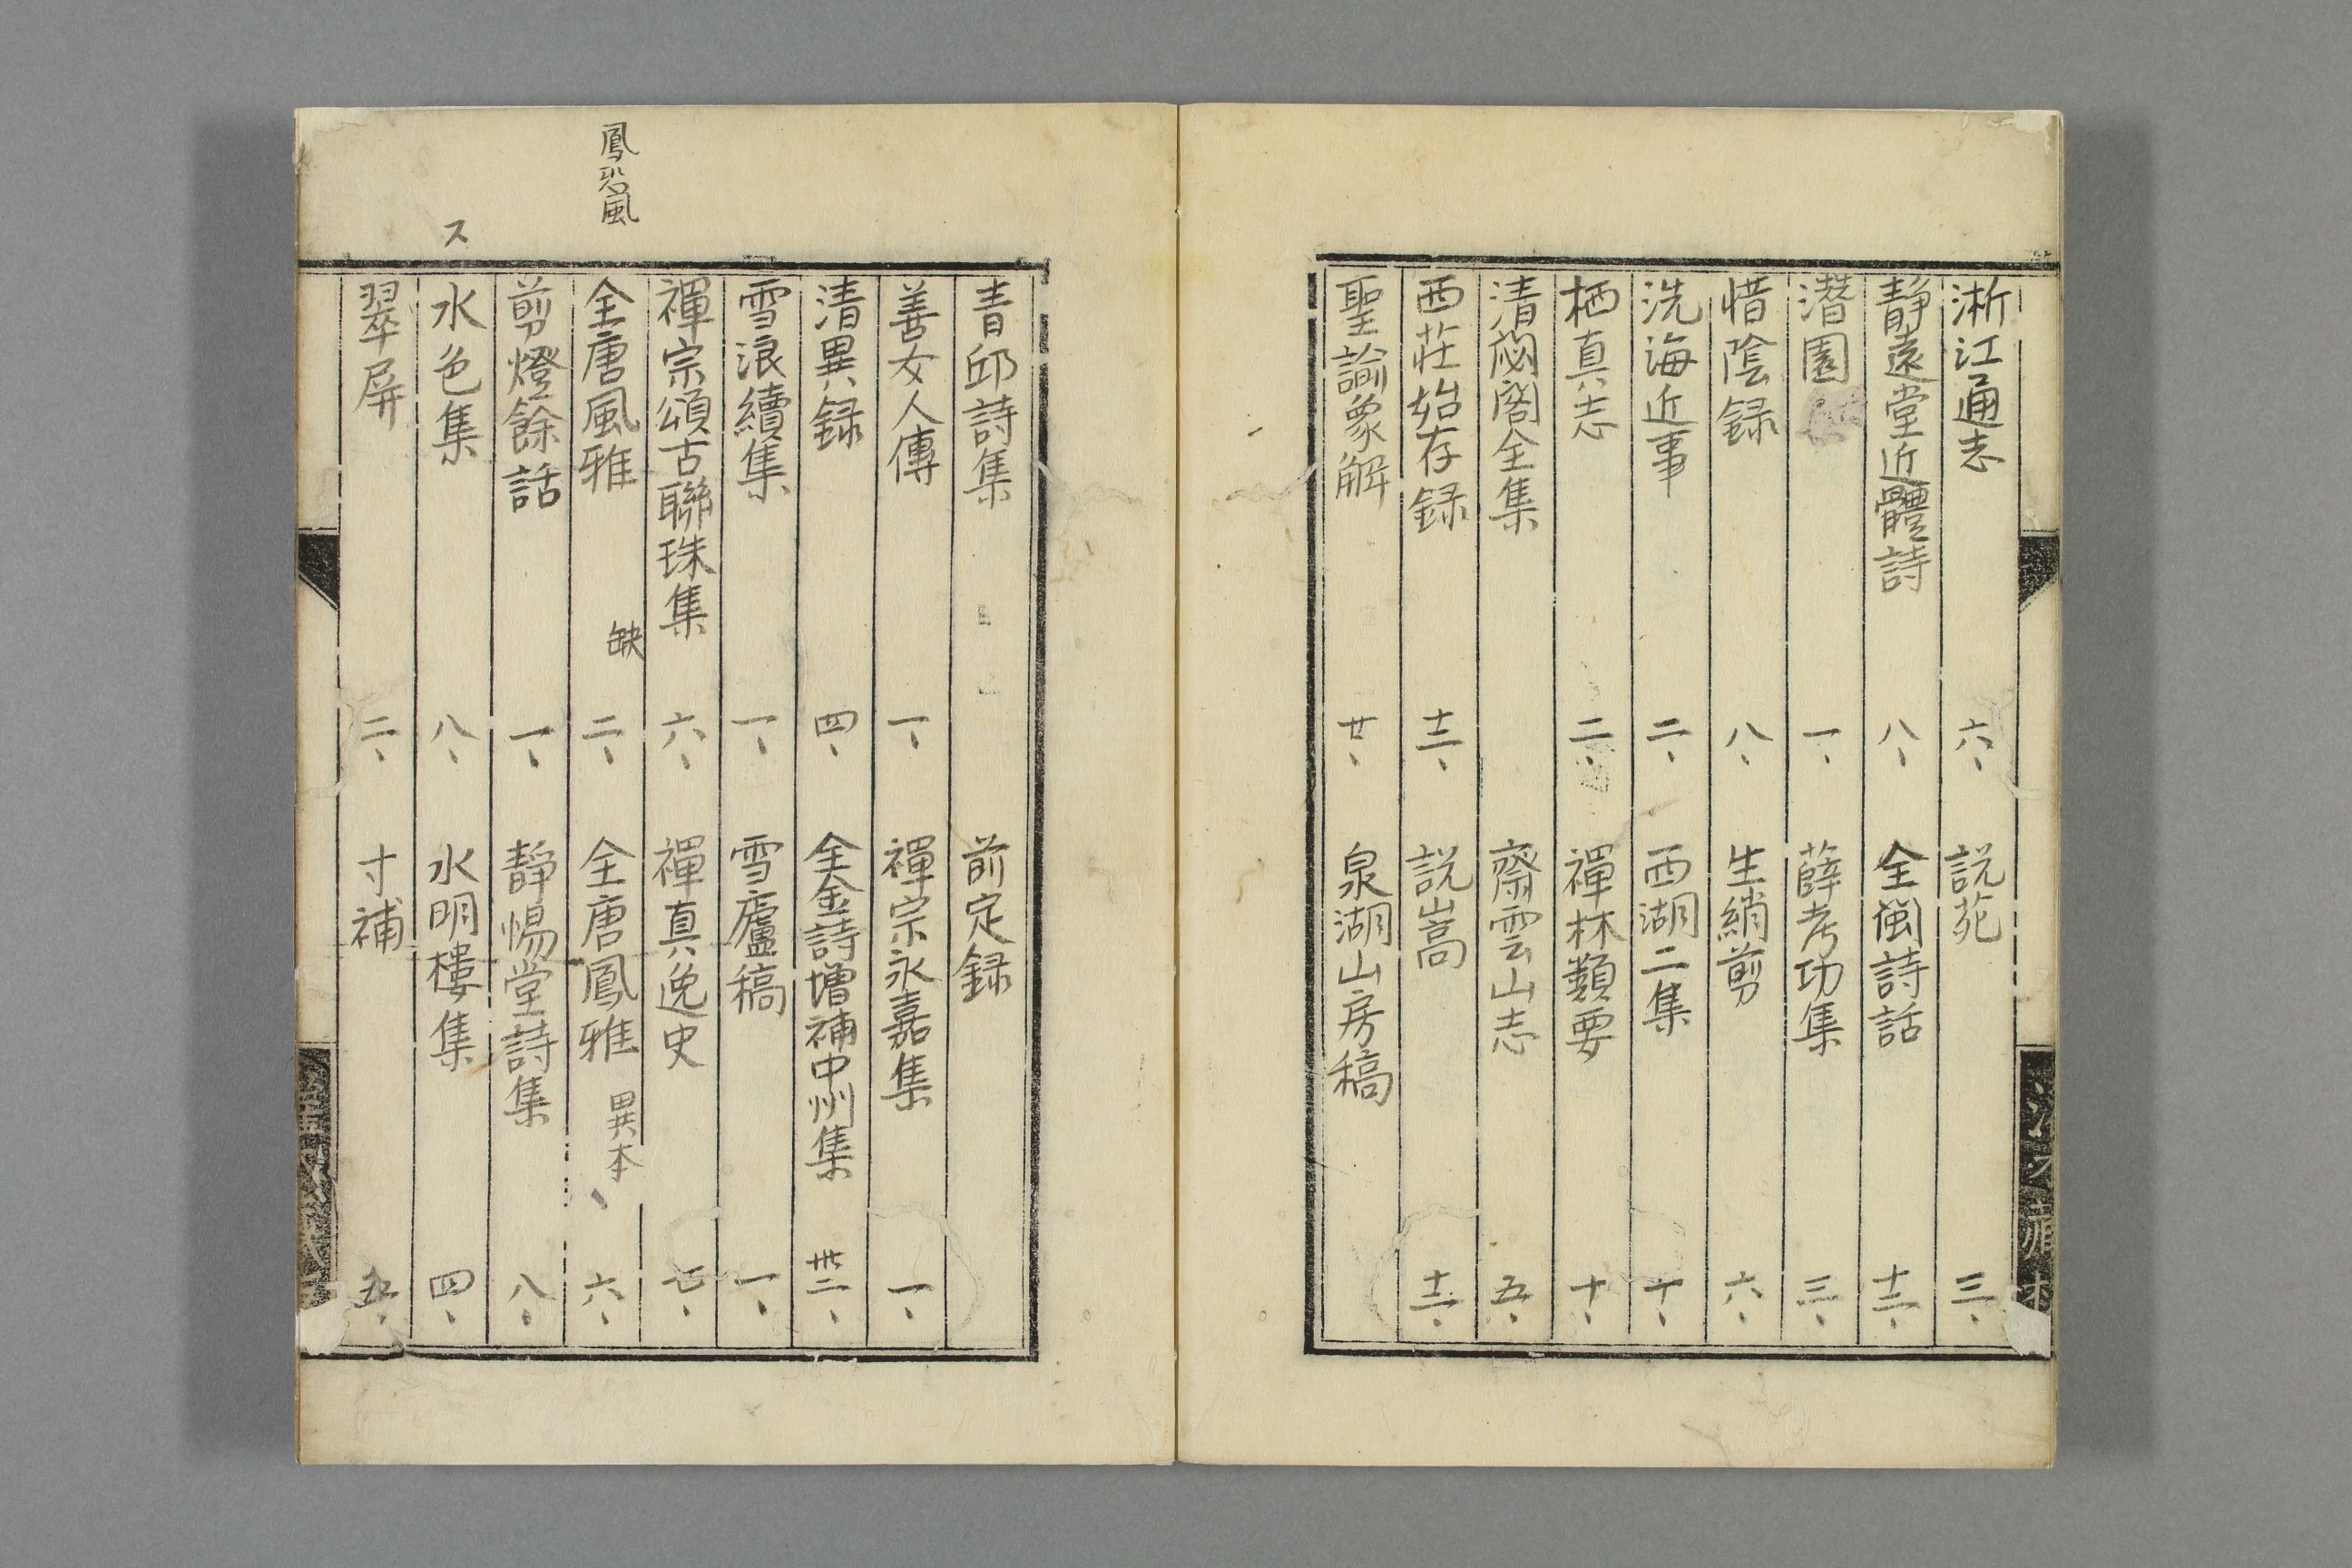 淅江通志 六、 説苑 三、
靜遠堂近體詩 八、 全閩詩話 十二、
潛園 一、 薛考功集 三、
惜陰録 八、 生綃剪 六、
洗海近事 二、 西湖二集 十、
栖真志 二、 禪林類要 十、
清閟閣全集 齋雲山志 五、
西莊始存録 十二、 説嵩 十二、
聖諭象解 廿、 泉湖山房稿
青邱詩集 前定録
善女人傳 一、 禪宗永嘉集 一、
清異録 四、 全金詩增補中州集 卅二、
雪浪續集 一、 雪廬稿 一、
禪宗頌古聯珠集 六、 禪真逸史 七、
鳳恐風
全唐風雅 缺 二、 全唐鳳雅 異本、 六、
剪燈餘話 一、 靜惕堂詩集 八、
ス
水色集 八、 水明樓集 四、
翠屏 二、 寸補 五、